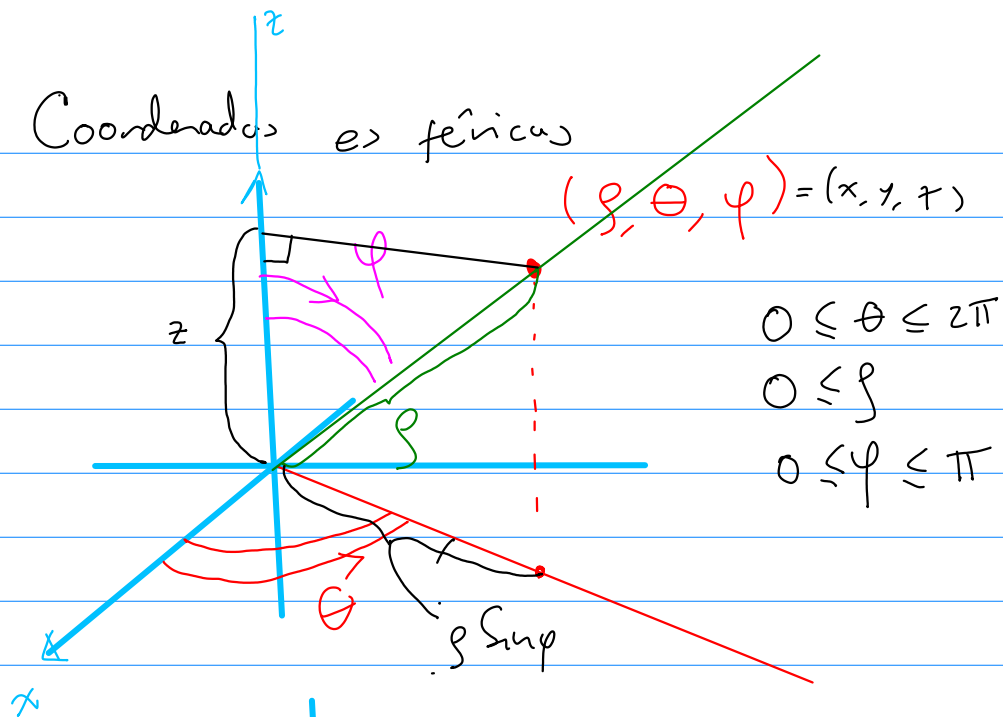 z
Coordenadas esféricas
(ρ, θ, φ) = (x, y, z)
φ
z
0 ≤ θ ≤ 2π
0 ≤ ρ
ρ
0 ≤ φ ≤ π
θ
ρ Sinφ
x